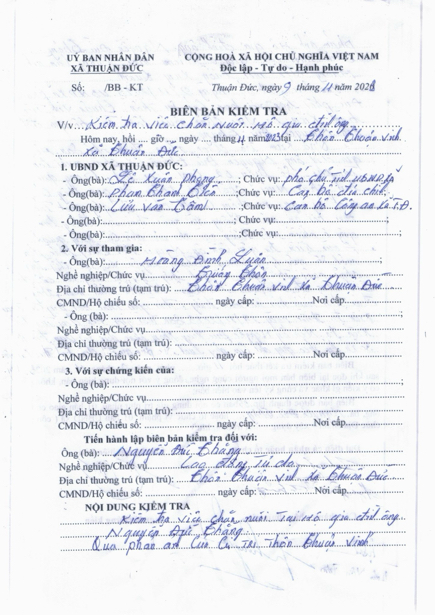 UỶ BAN NHÂN DÂN
XÃ THUẬN ĐỨC
CỘNG HOÀ XÃ HỘI CHỦ NGHĨA VIỆT NAM
Độc lập - Tự do - Hạnh phúc
Số: /BB - KT
Thuận Đức, ngày 9 tháng 11 năm 202
BIÊN BẢN KIỂM TRA
V/v... Kiểm tra việc chăn nuôi hộ gia đình ông
Hôm nay, hồi .... giờ .. ngày .... tháng 11 năm 2023 tại Thôn Thuận Vinh
Xã Thuận Đức
1. UBND XÃ THUẬN ĐỨC:
- Ông(bà): Lê Xuân Phong ; Chức vụ: phó chủ tịch UBND xã
- Ông(bà): Phan Thanh ; Chức vụ: Cán bộ địa chính
- Ông(bà): Lưu Văn ; Chức vụ: Cán bộ Công an xã T.Đ.
- Ông(bà): ; Chức vụ:
- Ông(bà): ; Chức vụ:
2. Với sự tham gia:
- Ông (bà): Hoàng Đình Luân
Nghề nghiệp/Chức vụ Trưởng Thôn
Địa chỉ thường trú (tạm trú): Thôn Thuận Vinh xã Thuận Đức
CMND/Hộ chiếu số: ngày cấp: Nơi cấp
- Ông (bà):
Nghề nghiệp/Chức vụ
Địa chỉ thường trú (tạm trú):
CMND/Hộ chiếu số: ngày cấp: Nơi cấp
3. Với sự chứng kiến của:
- Ông (bà): ;
Nghề nghiệp/Chức vụ
Địa chỉ thường trú (tạm trú):
CMND/Hộ chiếu số: ngày cấp: Nơi cấp
Tiến hành lập biên bản kiểm tra đối với:
Ông (bà): Nguyễn Đức Thắng
Nghề nghiệp/Chức vụ Lao động Tự do
Địa chỉ thường trú (tạm trú): Thôn Thuận Vinh xã Thuận Đức
CMND/Hộ chiếu số: ngày cấp: Nơi cấp
NỘI DUNG KIỂM TRA
Kiểm tra việc chăn nuôi Tại hộ gia đình ông
Nguyễn Đức Thắng
Qua phản ánh của Cử Tri Thôn Thuận Vinh